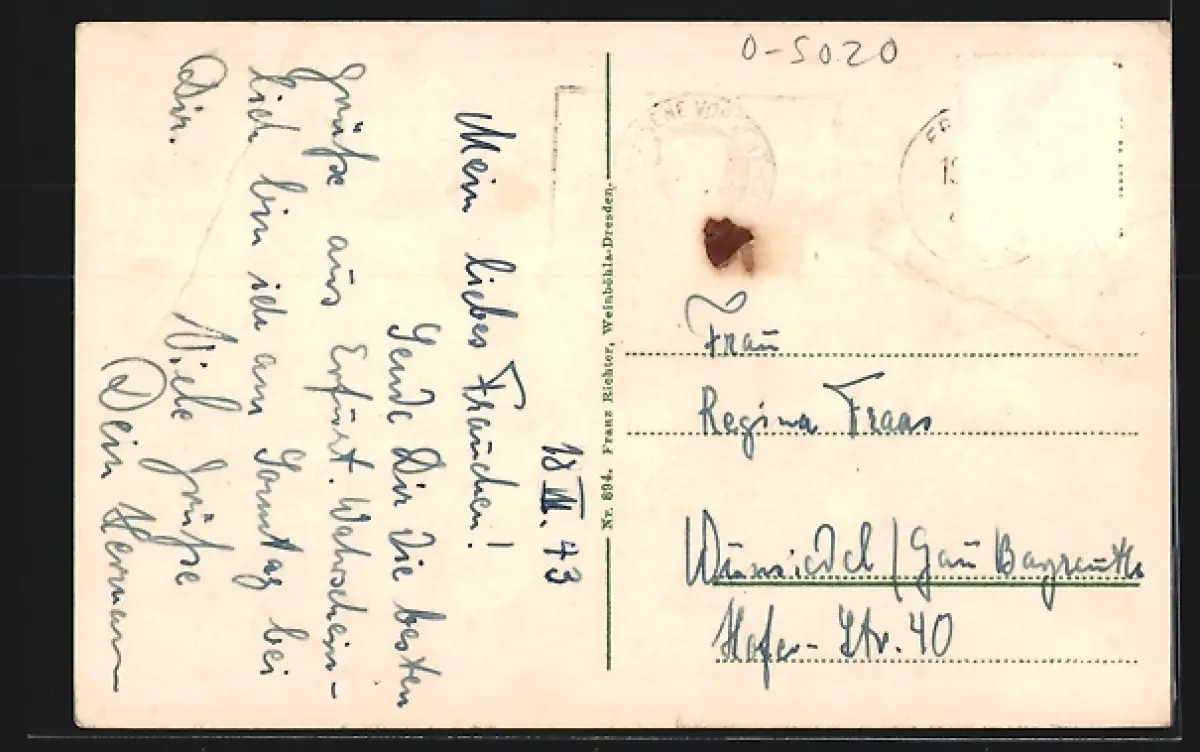 0-5020
43
Mein liebes Frauchen!
Sende Dir die besten
Grüße aus Erfurt. Wahrschein-
lich bin ich am Sonntag bei
Dir.
Viele Grüße
Dein Hermann
Nr. 894. Franz Richter, Weinböhla-Dresden.
Frau
Regina Fraas
Wunsiedel / Gau Bayreuth
Hofer-Str. 40